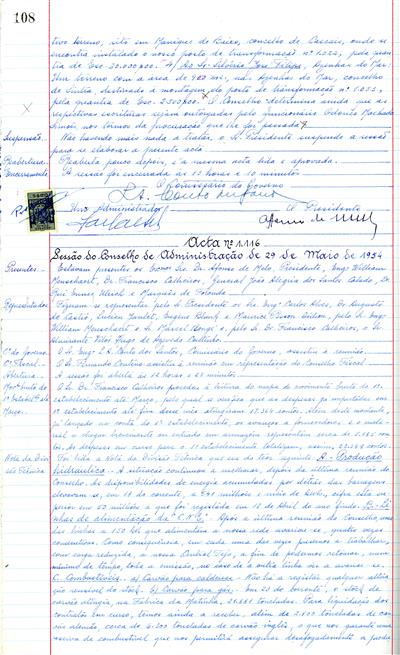 108
tivo terreno, sito em Manique de Baixo, concelho de Cascais, onde se
encontra instalado o nosso posto de transformação nº 1.022, pela quan-
tia de Esc. 30.000$00. 4) Ao Sr. Silvério José Filipe, Azenhas do Mar:
Um terreno com a área de 400 m2, na Azenhas do Mar, concelho
de Sintra, destinado a montagem do posto de transformação nº 1.055,
pela quantia de Esc. 2.500$00. O Conselho determina ainda que as
respectivas escrituras sejam outorgadas pelo funcionário Machado
nos termos da procuração que lhe foi passada.
Suspensão. - Não havendo mais nada a tratar, o Sr. Presidente suspende a sessão
para se elaborar a presente acta.
Reabertura. - Reaberta pouco depois, é a mesma acta lida e aprovada.
Encerramento. A sessão foi encerrada às 13 horas e 10 minutos.
O Comissário do Governo
Um Administrador O Presidente
Acta nº 1.116
Sessão do Conselho de Administração de 29 de Maio de 1954
Presentes. - Estavam presentes os Exmos Srs. Dr. Afonso de Melo, Presidente, Engº William
Dr. Francisco Calheiros, General João Alegria dos Santos Calado, Dr.
Rui Ennes Ulrich e Marquês de
Representados Fizeram-se representar pelo Sr. Presidente os Srs. Engº Carlos Alves, Dr. Augusto
de Castro, e Maurice pelo Sr. Engº
William o Sr. Marcel e pelo Sr. Dr. Francisco Calheiros, o Sr.
Almirante Vitor Hugo de Azevedo Coutinho.
Cº do Governo O Sr. Engº J. A. Couto dos Santos, Comissário do Governo, assistiu à reunião.
Cº Fiscal. - O Sr. Fernando assistiu à reunião em representação do Conselho Fiscal.
Abertura. - A sessão foi aberta às 12 horas e minutos.
O Sr. Dr. Francisco Calheiros procedeu à leitura do mapa do movimento do 1º
estabelecimento até Março, pelo qual se verifica que as despesas já
Março. - 1º estabelecimento até fim desse mês atingiram 17.364 contos. Além deste montante,
já lançado na conta do 1º estabelecimento, os avanços a fornecedores, e o mate-
rial a chegar brevemente ou entrado em armazéns representam cerca de contos.
Nota da Divi- Foi lida a Nota da Divisão Técnica que é do teor seguinte: A - Produção
são Técnica hidráulica - A situação continuou a melhorar, depois da última reunião do
Conselho. As disponibilidades de energia acumuladas por detrás das barragens
elevavam-se, em 19 do corrente, a milhões e meio de kwh, cifra esta su-
perior em 50 milhões à que foi registada em 18 de Abril do ano findo. B - Li-
nhas de alimentação da C.N.E. - Após a última reunião do Conselho, uma
das linhas a 150 kV que alimentam a nossa rede avariou-se, quatro vezes
consecutivas. Como consequência, em cada uma das vezes pusemos a trabalhar,
com carga reduzida, a nossa Central Tejo, a fim de podermos retomar, num
mínimo de tempo, toda a emissão, no caso de a outra linha vir a avariar-se.
C. Combustíveis. - a) Carvão para caldeiras - Não há a registar qualquer altera-
ção sensível do stock. b) Carvão para gás. - Em 21 do corrente, o stock de
carvão atingia, na Fábrica da Matinha, toneladas. Para liquidação dos
contratos em curso, temos ainda a receber, além de 2.100 toneladas de car-
vão alemão, cerca de 6.300 toneladas de carvão inglês, o que nos garante uma
reserva de combustível que nos permitirá assegurar desafogadamente a produ-